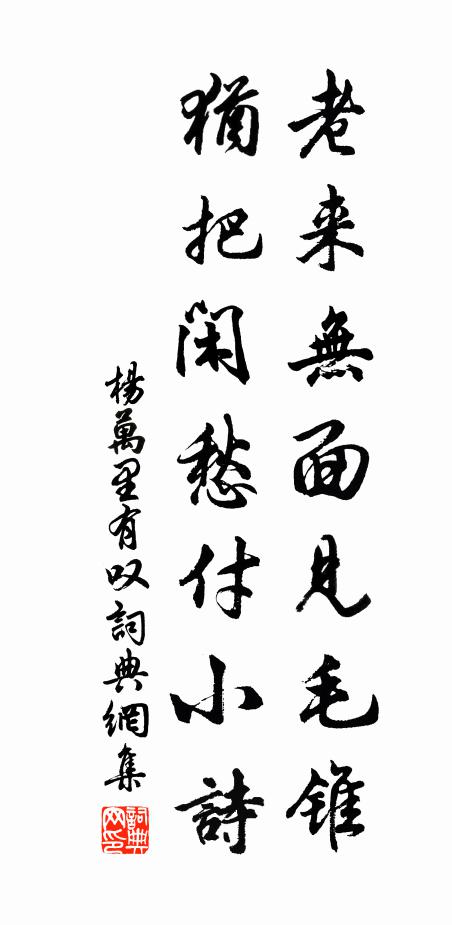 老来無面見毛錐
猶把閑愁付小詩
楊萬里有叹詞典網集
詞典網印